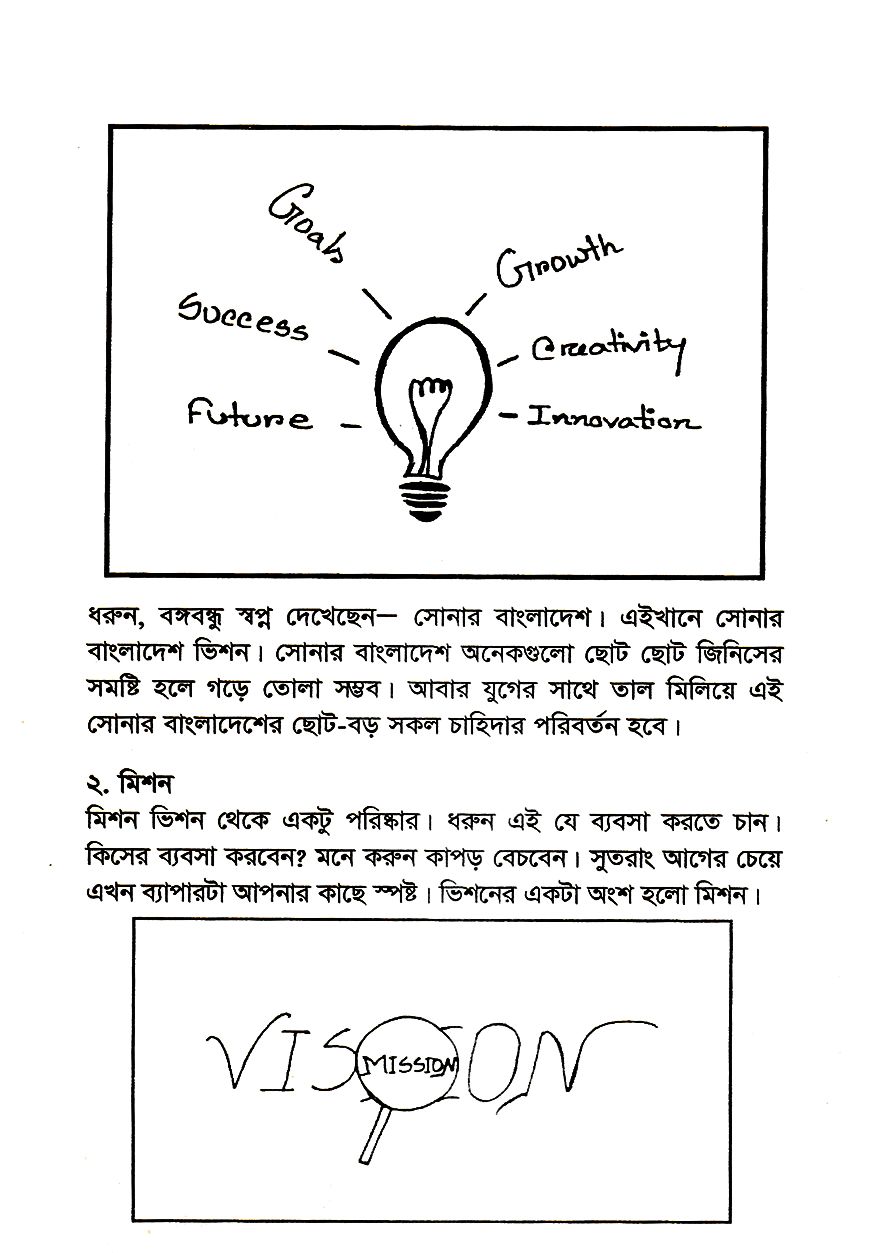 Goals
Growth
Success
Creativity
Future
Innovation
ধরুন, বঙ্গবন্ধু স্বপ্ন দেখেছেন— সোনার বাংলাদেশ। এইখানে সোনার
বাংলাদেশ ভিশন। সোনার বাংলাদেশ অনেকগুলো ছোট ছোট জিনিসের
সমষ্টি হলে গড়ে তোলা সম্ভব। আবার যুগের সাথে তাল মিলিয়ে এই
সোনার বাংলাদেশের ছোট-বড় সকল চাহিদার পরিবর্তন হবে।
২. মিশন
মিশন ভিশন থেকে একটু পরিষ্কার। ধরুন এই যে ব্যবসা করতে চান।
কিসের ব্যবসা করবেন? মনে করুন কাপড় বেচবেন। সুতরাং আগের চেয়ে
এখন ব্যাপারটা আপনার কাছে স্পষ্ট। ভিশনের একটা অংশ হলো মিশন।
VISION
MISSION